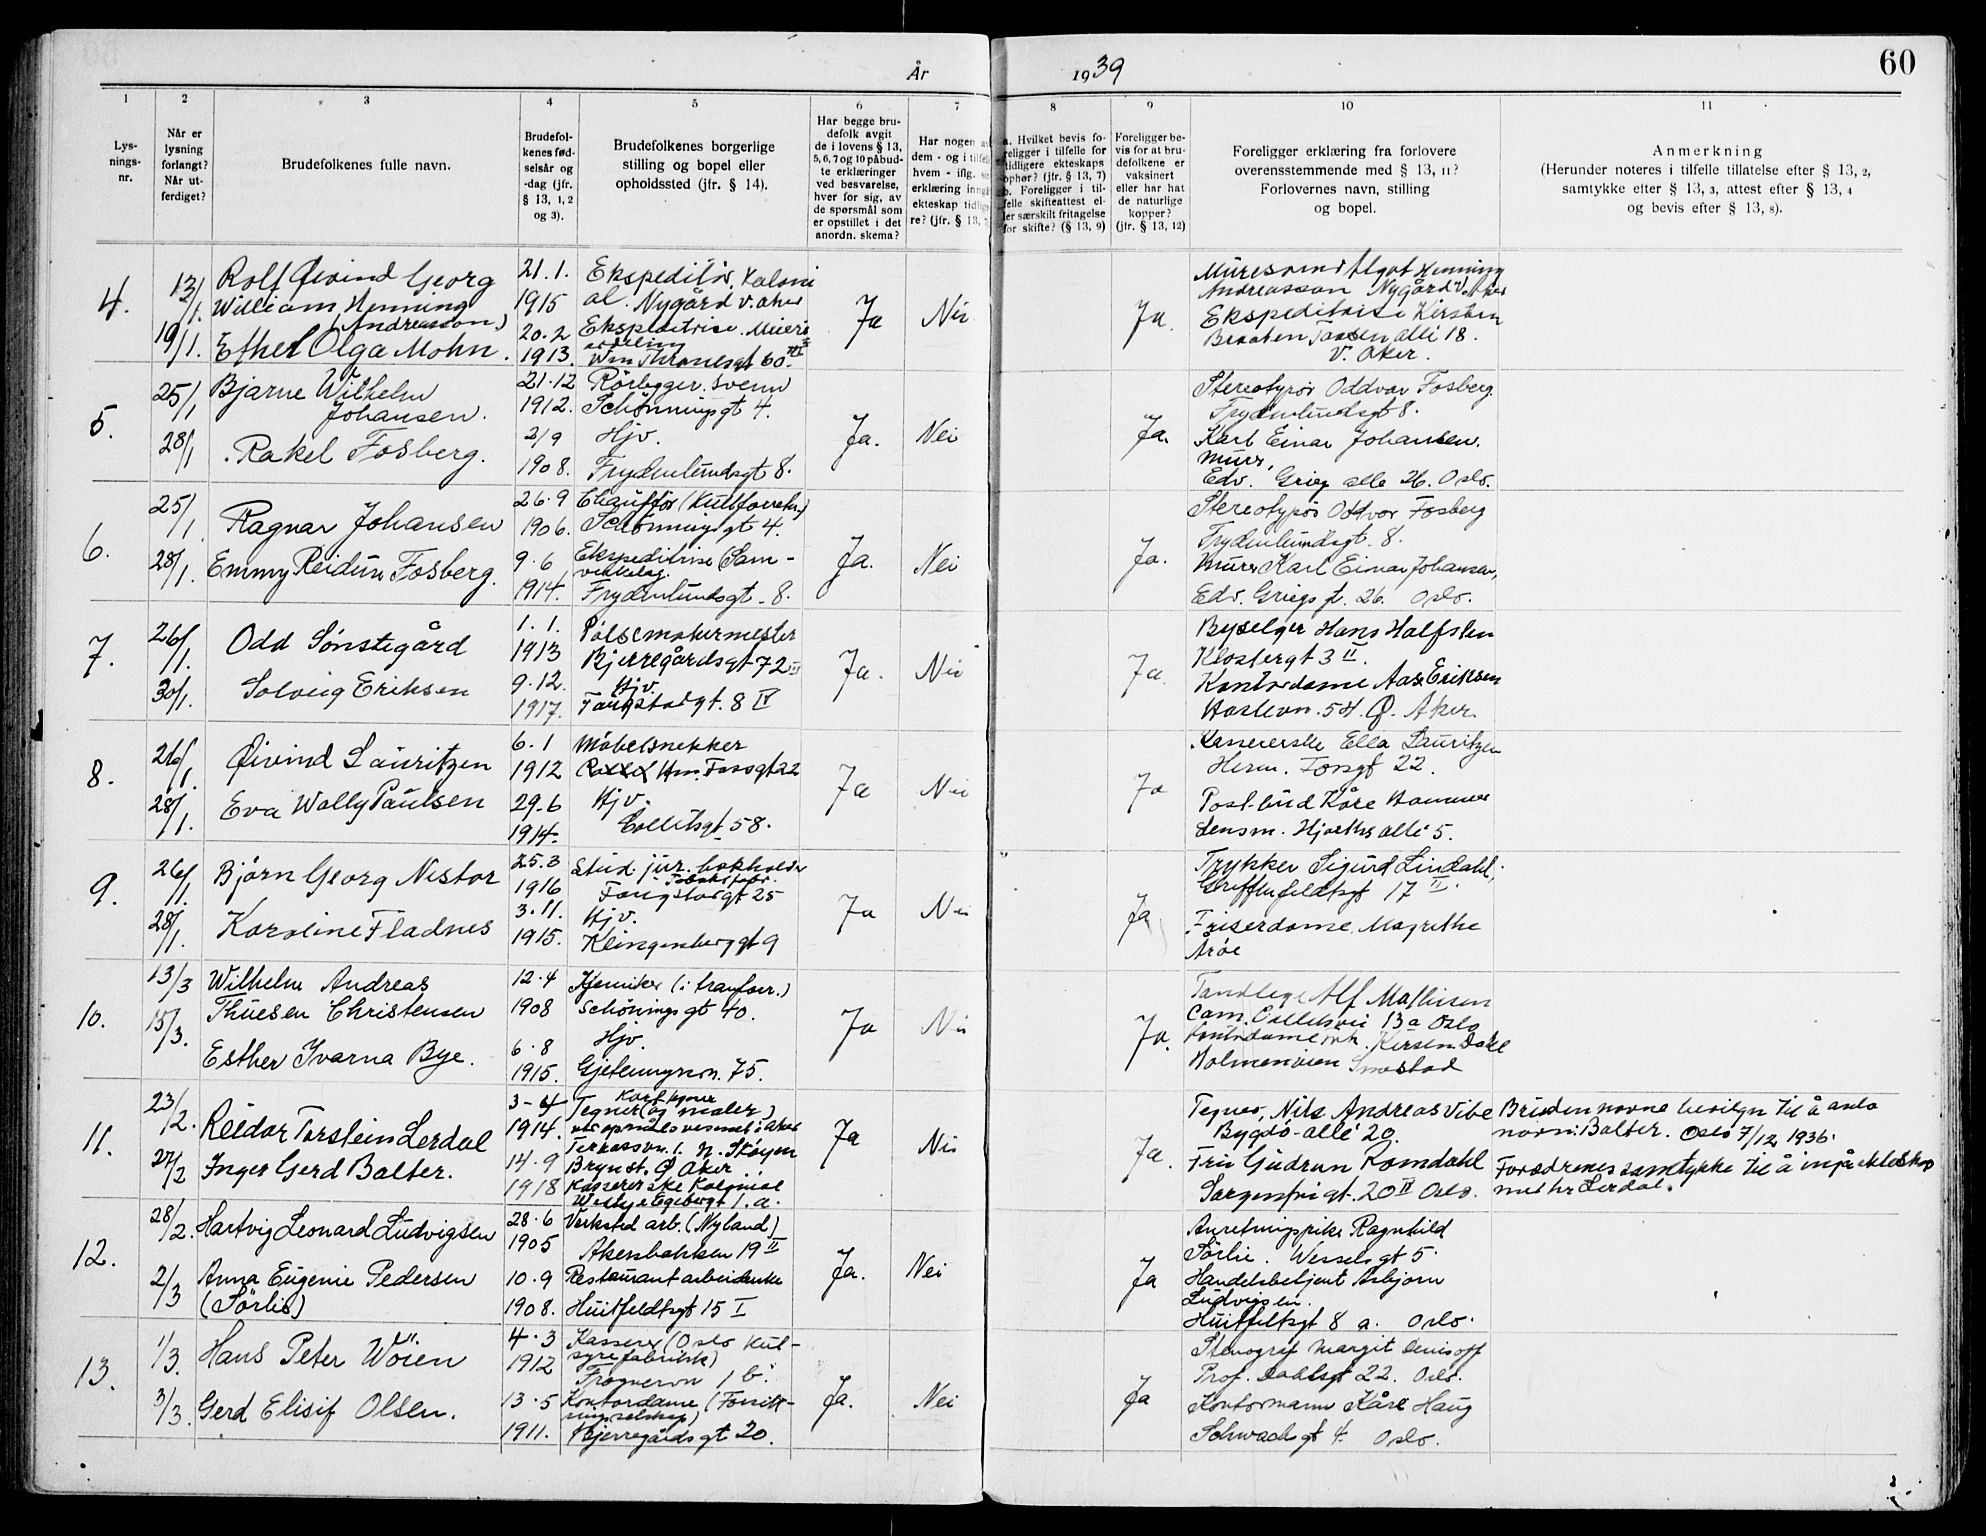 År 1939
60
1 2 3 4 5 6 7 8 9 10 11
Lys-
nings-
nr.
Når er
lysning
forlangt?
Når ut-
ferdiget?
Brudefolkenes fulle navn.
Brudefol-
kenes fød-
selsår og
-dag (jfr.
§ 13, 1, 2
og 3).
Brudefolkenes borgerlige
stilling og bopel eller
opholdssted (jfr. § 14).
Har begge bru-
defolk avgit
de i lovens § 13,
5, 6, 7 og 10 påbud-
te erklæringer
ved besvarelse,
hver for sig, av
de spørsmål som
er opstillet i det
anordn. skema?
Har nogen av
dem - og i tilfelle
hvem - iflg.
erklæring inng
ekteskap tidlig
re? (jfr. § 13,
a. Hvilket bevis fo-
religger i tilfelle for
tidligere ekteskaps
ophør? (jfr. § 13, 7)
b. Foreligger i til-
felle skifteattest el-
ler særskilt fritagelse
for skifte? (§ 13, 9)
Foreligger be-
vis for at bru-
defolkene er
vaksinert
eller har hat
de naturlige
kopper?
(jfr. § 13, 12)
Foreligger erklæring fra forlovere
overensstemmende med § 13, 11?
Forlovernes navn, stilling
og bopel.
Anmerkning
(Herunder noteres i tilfelle tillatelse efter § 13, 2,
samtykke efter § 13, 3, attest efter § 13, 4
og bevis efter § 13, 8).
4.
13/1.
19/1.
Rolf Øivind Georg
William Henning
(Andreasson)
Ethel Olga Mohn.
21.1.
1915
20.2
1913.
Ekspeditør, Koloni
al. Nygård v. Aker
Ekspeditrise. Meieri
avdeling
Wm Thranesgt 60.
Ja
Nei
Ja.
Murersvend Algot Henning
Andreasson Nygård V. Aker
Ekspeditrise Kirsten
Braaten Taasen alle 18.
V. Aker.
5.
25/1
28/1
Bjarne Wilhelm
Johansen.
Rakel Fosberg.
21.12
1912.
2/9
1908.
Rørlegger. svenn
Schønningsgt 4.
Hjv.
Frydenlundsgt 8.
Ja.
Nei
Ja.
Stereotypør Oddvar Fosberg.
Frydenlundsgt 8.
Karl Einar Johansen.
murer,
Edv. Grieg alle 26. Oslo.
6.
25/1.
28/1.
Ragnar Johansen
Emmy Reidun Fosberg.
26.9
1906.
9.6
1914.
Chauffør (Kullforretn.)
Schønningsgt 4.
Ekspeditrise (Sam-
virkelag.
Frydenlundsgt. 8.
Ja.
Nei
Ja.
Stereotypør Oddvar Fosberg
Frydenlundsgt. 8.
Murer Karl Einar Johansen,
Edv. Griegs gt. 26. Oslo.
7.
26/1.
30/1.
Odd Sønstegård
Solveig Eriksen
1.1.
1913
9.12.
1917.
Pølsemakermester
Bjerregårdsgt 72 III
Hjv.
Fougstadgt. 8 IV
Ja.
Nei
Ja.
Byselger Hans Halfsten
Klostergt 3 II.
Kontordame Aase Eriksen
Haslevn. 54. Ø. Aker.
8.
26/1.
28/1.
Øivind Lauritzen
Eva Wally Paulsen
6.1
1912
29.6
1914.
Møbelsnekker
Hm. Fossgt 22
Hjv.
Collettsgt 58.
Ja
Nei
Ja
Kassererske Ella Lauritzen
Herm. Fossgt 22.
Postbud Kåre Hammer
Lensm. Hjorths alle 5.
9.
26/1.
28/1.
Bjørn Georg Nestor
Karoline Fladnes
25.3
1916
3.11.
1915.
Stud. jur. bokholder
Fougstadgt 25
Hjv.
Klingenberggt 9
Ja
Nei
Ja
Trykker Sigurd Lindahl,
Griffenfeldtsgt 17 II.
Friserdame Magrethe
Årøe
10.
13/3
15/3.
Wilhelm Andreas
Thuesen Christensen
Esther Ivarna Bye.
12.4
1908
6.8
1915.
Kjemiker (i tranforr.)
Schönings gt 40.
Hjv.
Gjetemyrsvn. 75.
Ja
Nei
Ja.
Tandlege Alf Mathisen
Cam. Collettsvei 13a Oslo
Kontordame frk. Kirsten Dahl
Holmenveien Smestad
11.
23/2.
27/2
Reidar Torstein Lerdal
Inger Gerd Balter.
3-4
1914.
14.9
1918
Kart tegner
Tegner (og maler)
ver opmålesvesenet i Aker
Terrassevn. 1. N. Skøyen
Brynst. Ø Aker
Kassererske Kolonial
Westye Egebergt 1.a.
Ja
Nei
Ja.
Tegner, Nils Andreas Vibe
Bygdø-alle 20.
Frk Gudrun Romdahl
Sorgenfrigt. 20 II Oslo.
Bruden navne bevilgn til å anta
navn: Balter. Oslo 7/12 1936.
Foreldrenes samtykke til å inngå ekteskap
med hr Lerdal.
12.
28/2.
2/3
Hartvig Leonard Ludvigsen
Anna Eugenie Pedersen
(Sörlie)
28.6
1905
10.9
1908.
Verksted arb. (Nyland)
Akersbakken 19 II
Restaurantarbeiderske
Huitfeldtsgt 15 I
Ja.
Nei
Ja
Anretningspike Ragnhild
Sörlie. Wessels gt 5.
Handelsbetjent Asbjørn
Ludvigsen.
Huitfeltsgt 8 a. Oslo.
13.
1/3.
3/3.
Hans Peter Wöien
Gerd Elisif Olsen.
4.3
1912
13.5
1911.
Kasserer (Oslo Kul-
syrefabrikk)
Frognervn 1 b.
Kontordame (Forsik-
ringsselskap)
Bjerregårdsgt 20.
Ja.
Nei
Ja
Stenograf Margit Denisoff
Prof. Dahlsgt 22. Oslo.
Kontormann Kåre Haug
Schwachsgt 4. Oslo.